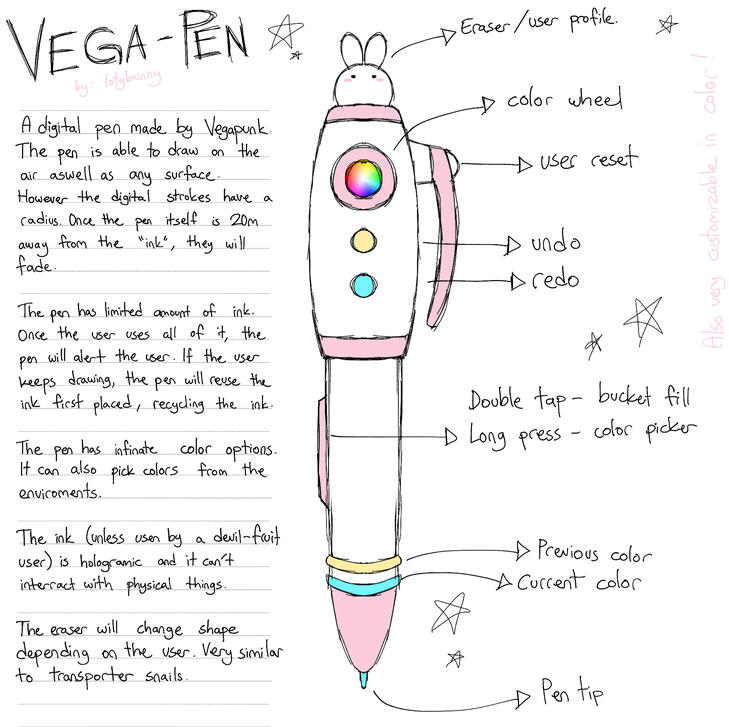 VEGA-PEN
by: lotybunny
A digital pen made by Vegapunk.
The pen is able to draw on the
air aswell as any surface.
However the digital strokes have a
radius. Once the pen itself is 20m
away from the "ink", they will
fade.
The pen has limited amount of ink.
Once the user uses all of it, the
pen will alert the user. If the user
keeps drawing, the pen will reuse the
ink first placed, recycling the ink.
The pen has infinate color options.
It can also pick colors from the
enviroments.
The ink (unless usen by a devil-fruit
user) is hologramic and it can't
interract with physical things.
The eraser will change shape
depending on the user. Very similar
to transporter snails.
Eraser/user profile.
color wheel
user reset
undo
redo
Double tap - bucket fill
Long press - color picker
Previous color
Current color
Pen tip
Also very customizable in color!